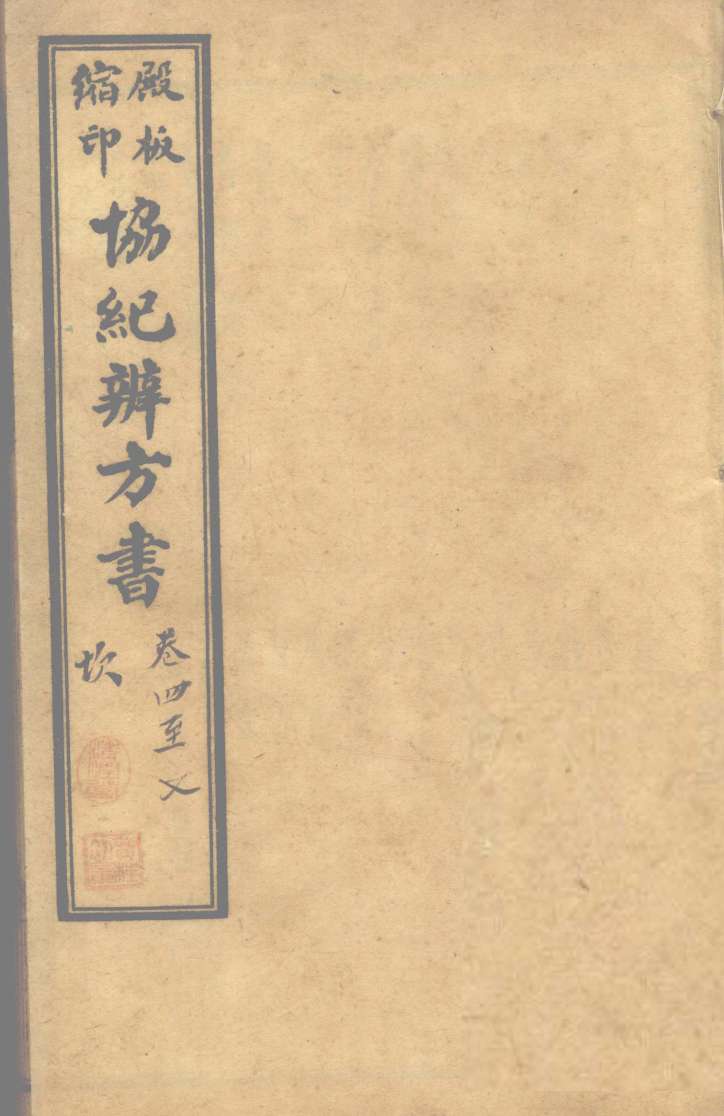 殿板
縮印
協紀辨方書
卷四至㐅
坎